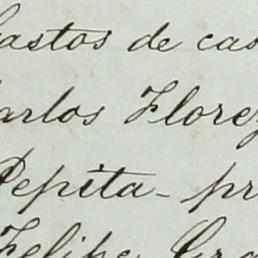 Gastos de cas
Carlos Florez
Pepita - pr
Felipe Gra